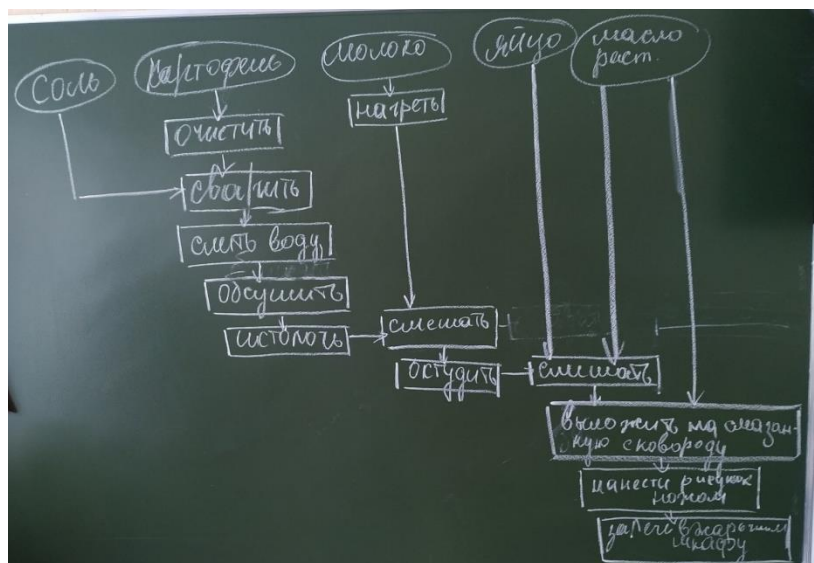 Соль
Картофель
молоко
яйцо
масло
раст.
нагреть
очистить
сварить
слить воду
Обсушить
истолочь
смешать
остудить
смешать
выложить на смазан-
ную сковороду
нанести рисунок
ножом
запечь в жарочном
шкафу